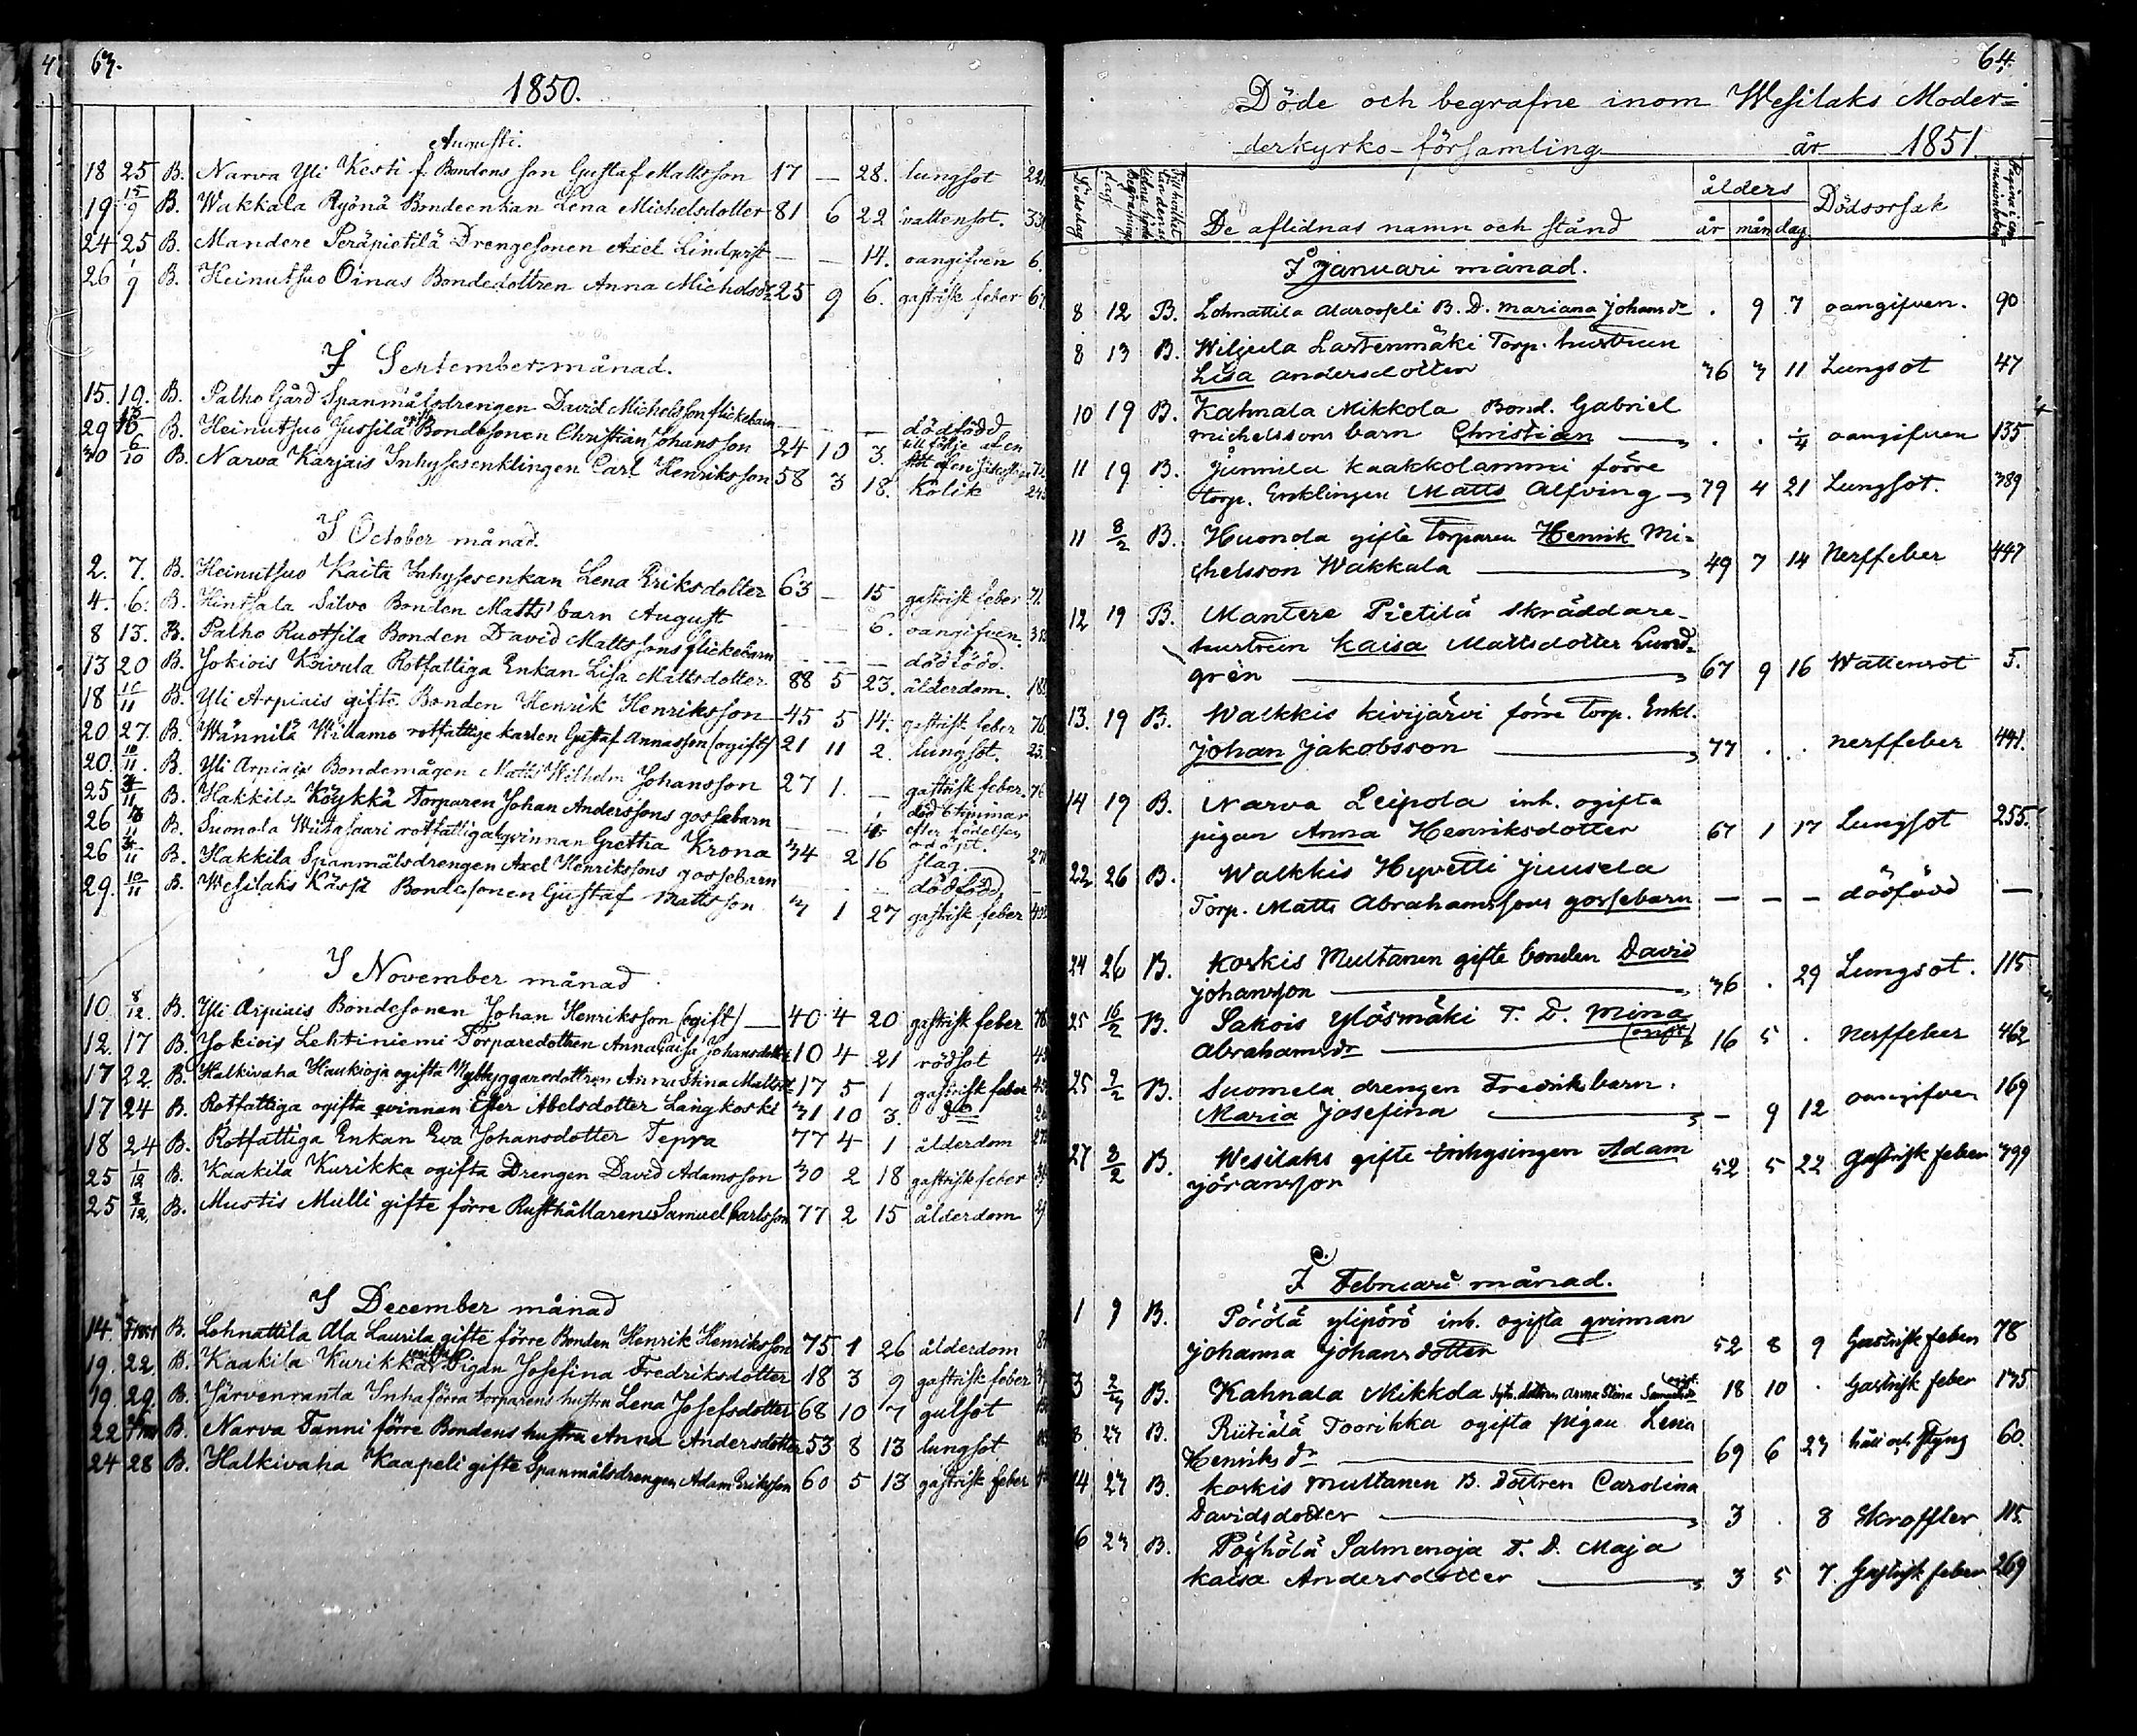 63.
1850.
Augusti.
18 25 B. Narva Yli Kesti f. Bondens son Gustaf Mattsson 17 — 28. lungsot
19 15/9 B. Wakkala Ryönä Bondeenkan Lena Michelsdotter 81 6 22 vattensot.
24 25 B. Mandere Peräpietilä Drengesonen Axel Lindqvist — — 14. oangifven 6.
26 1/9 B. Heinutsuo Oinas Bondedottren Anna Michelsdr 25 9 6. gastrisk feber
I September månad.
15. 19. B. Palho Gård Spanmålsdrengen David Michelsson flickebarn — — — dödfödd
29 B. Heinutsuo Jussila Bondesonen Christian Johansson 24 10 3. till följe af en
30 6/10 B. Narva Karjais Inhysesenklingen Carl Henriksson 58 3 18. Kolik
I October månad.
2. 7. B. Heinutsuo Kaita Inhysesenkan Lena Eriksdotter 63 — 15 gastrisk feber 71.
4. 6. B. Hintsala Silvo Bonden Matts' barn August — — 6. oangifven.
8 13. B. Palho Ruotsila Bonden David Mattssons flickebarn — — — dödfödd.
13 20 B. Jokiois Koivula Rotfattiga Enkan Lisa Mattsdotter 88 5 23. ålderdom.
18 11 B. Yli Arpiais gifte Bonden Henrik Henriksson 45 5 14. gastrisk feber 76.
20 27. B. Wännilä Widamo rotfattige karlen Gustaf Annasson (ogift) 21 11 2. lungsot.
20. 10/11. B. Yli Arpiais Bondemågen Matts Wilhelm Johansson 27 1. — gastrisk feber. 76
25 3/11 B. Hakkila Köykkä Torparen Johan Anderssons gossebarn — — död 6 timmar efter födelsen
26 11 B. Suonola Wiitasaari rotfattiga qvinnan Gretha Krona 34 2 16 slag.
26 3/11 B. Hakkila Spanmålsdrengen Axel Henrikssons gossebarn — — — dödfödd
29. 10/11 B. Wesilaks Kässä Bondesonen Gustaf Mattsson 3 1 27 gastrisk feber
I November månad
10. 8/12. B. Yli Arpiais Bondesonen Johan Henriksson (ogift) — 40 4 20 gastrisk feber 76
12. 17 B. Jokiois Lehtiniemi Torparedottren Anna Caisa Johansdotter 10 4 21 rödsot
17 22. B. Halkivaha Haukioja ogifta Nybyggaredottren Anna Stina Mattsdr 17 5 1 gastrisk feber
17 24 B. Rotfattiga ogifta qvinnan Ester Abelsdotter Långkoski 31 10 3. do
18 24 B. Rotfattiga Enkan Eva Johansdotter Tepra 77 4 1 ålderdom
25 1/12 B. Kaakila Kurikka ogifta Drengen David Adamsson 30 2 18 gastrisk feber
25 8/12. B. Mustis Mulli gifte förre Rusthållaren Samuel Carlsson 77 2 15 ålderdom
I December månad
14. B. Lohnattila Ala Laurila gifte förre Bonden Henrik Henriksson 75 1 26 ålderdom
19. 22. B. Kaakila Kurikka ogifta Pigan Josefina Fredriksdotter 18 3 9 gastrisk feber
19. 29. B. Järvenranta Inha förra torparens hustru Lena Josefsdotter 68 10 7 gulsot
22 B. Narva Tanni förre Bondens hustru Anna Andersdotter 53 8 13 lungsot
24 28 B. Halkivaha Kaapeli gifte Spanmålsdrengen Adam Eriksson 60 5 13 gastrisk feber
64.
Döde och begrafne inom Wesilaks Moder=
derkyrko-församling år 1851
Dödsdag
Begrafnings dag
De aflidnas namn och stånd
ålders
år mån dag
Dödsorsak
I Januari månad.
8 12 B. Lohnattila Alarossi B. D. Mariana Johansdr . 9 7 oangifven. 90
8 13 B. Wiljula Lastenmäki Torp. hustrun
Lisa Andersdotter 36 3 11 Lungsot 47
10 19 B. Kahnala Mikkola Bond. Gabriel
Michelssons barn Christian — . . 1/4 oangifven 135
11 19 B. Junnila Kaakkolammi förre
torp. Enklingen Matts Alfving — 79 4 21 Lungsot. 389
11 8/2 B. Huonda gifte torparen Henrik Mi=
chelsson Wakkala — 49 7 14 Nerffeber 447
12 19 B. Mantere Pietilä skräddare-
hustrun Kaisa Mattsdotter Lund=
grén — 67 9 16 Wattensot 5.
13. 19 B. Walkkis Kivijärvi förre torp. Enkl.
Johan Jakobsson — 77 . . nerffeber 441.
14 19 B. Narva Leipola inh. ogifta
pigan Anna Henriksdotter 67 1 17 Lungsot 255.
22 26 B. Walkkis Hyvetti Juusela
Torp. Matts Abrahamssons gossebarn — — — dödfödd —
24 26 B. Koskis Multanen gifte bonden David
Johansson — 36 . 29 Lungsot. 115
25 16/2 B. Sakois Ylösmäki T. D. Mina
Abrahamsdr — (ogift) 16 5 . nerffeber 462
25 9/2 B. Suomela drengen Fredriks barn.
Maria Josefina — – 9 12 oangifven 169
27 3/2 B. Wesilaks gifte inhysingen Adam
Göransson 52 5 22 Gastrisk feber 399
I Februari månad.
1 9 B. Pörölä ylipörö inh. ogifta qvinnan
Johanna Johansdotter 52 8 9 Gastrisk feber 78
3 2/3 B. Kahnala Mikkola dottren Anna Stina 18 10 . Gastrisk feber 135
8. 23 B. Riitiälä Toorikka ogifta pigan Lena
Henriksdr — 69 6 23 håll och styng 60.
14 23 B. Koskis Multanen B. Dottren Carolina
Davidsdotter — 3 . 8 Skroffler 115.
16 23 B. Pöyhölä Salmenoja T. D. Maja
Kaisa Andersdotter — 3 5 7 Gastrisk feber 269